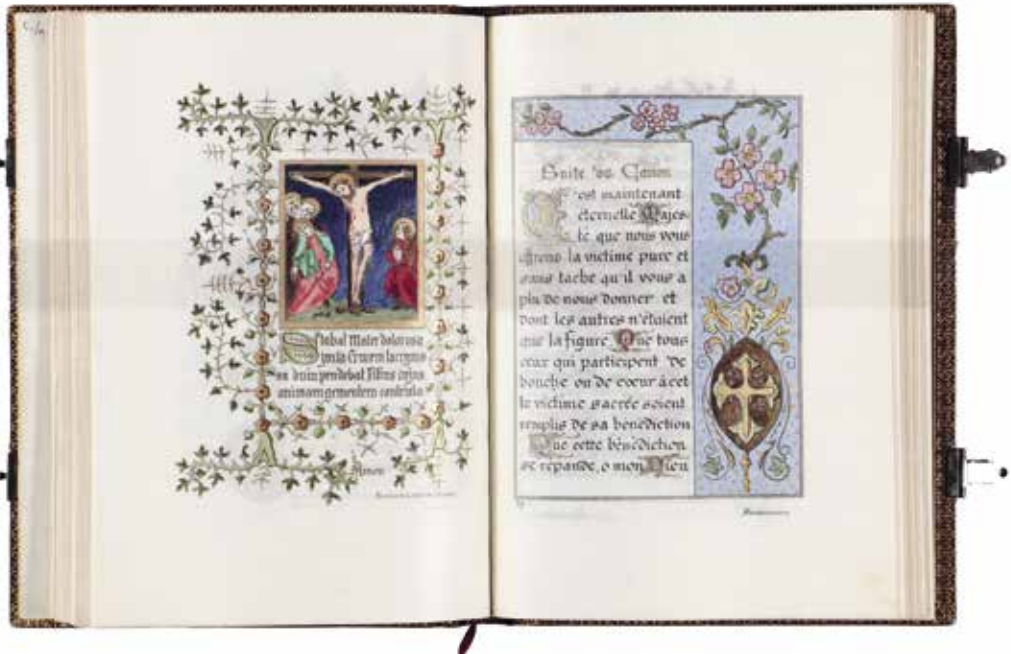 Stabat Mater dolorosa
juxta Crucem lacrymo
sa dum pendebat Filius cujus
animam gementem contrista
Amen
Suite du Canon
C'est maintenant
éternelle Majes
té que nous vous
offrons la victime pure et
sans tache qu'il vous a
plu de nous donner et
dont les autres n'étoient
que la figure Que tous
ceux qui participent de
bouche ou de cœur à cet
te victime sacrée soient
remplis de sa bénédiction
Que cette bénédiction
se répande, o mon Dieu